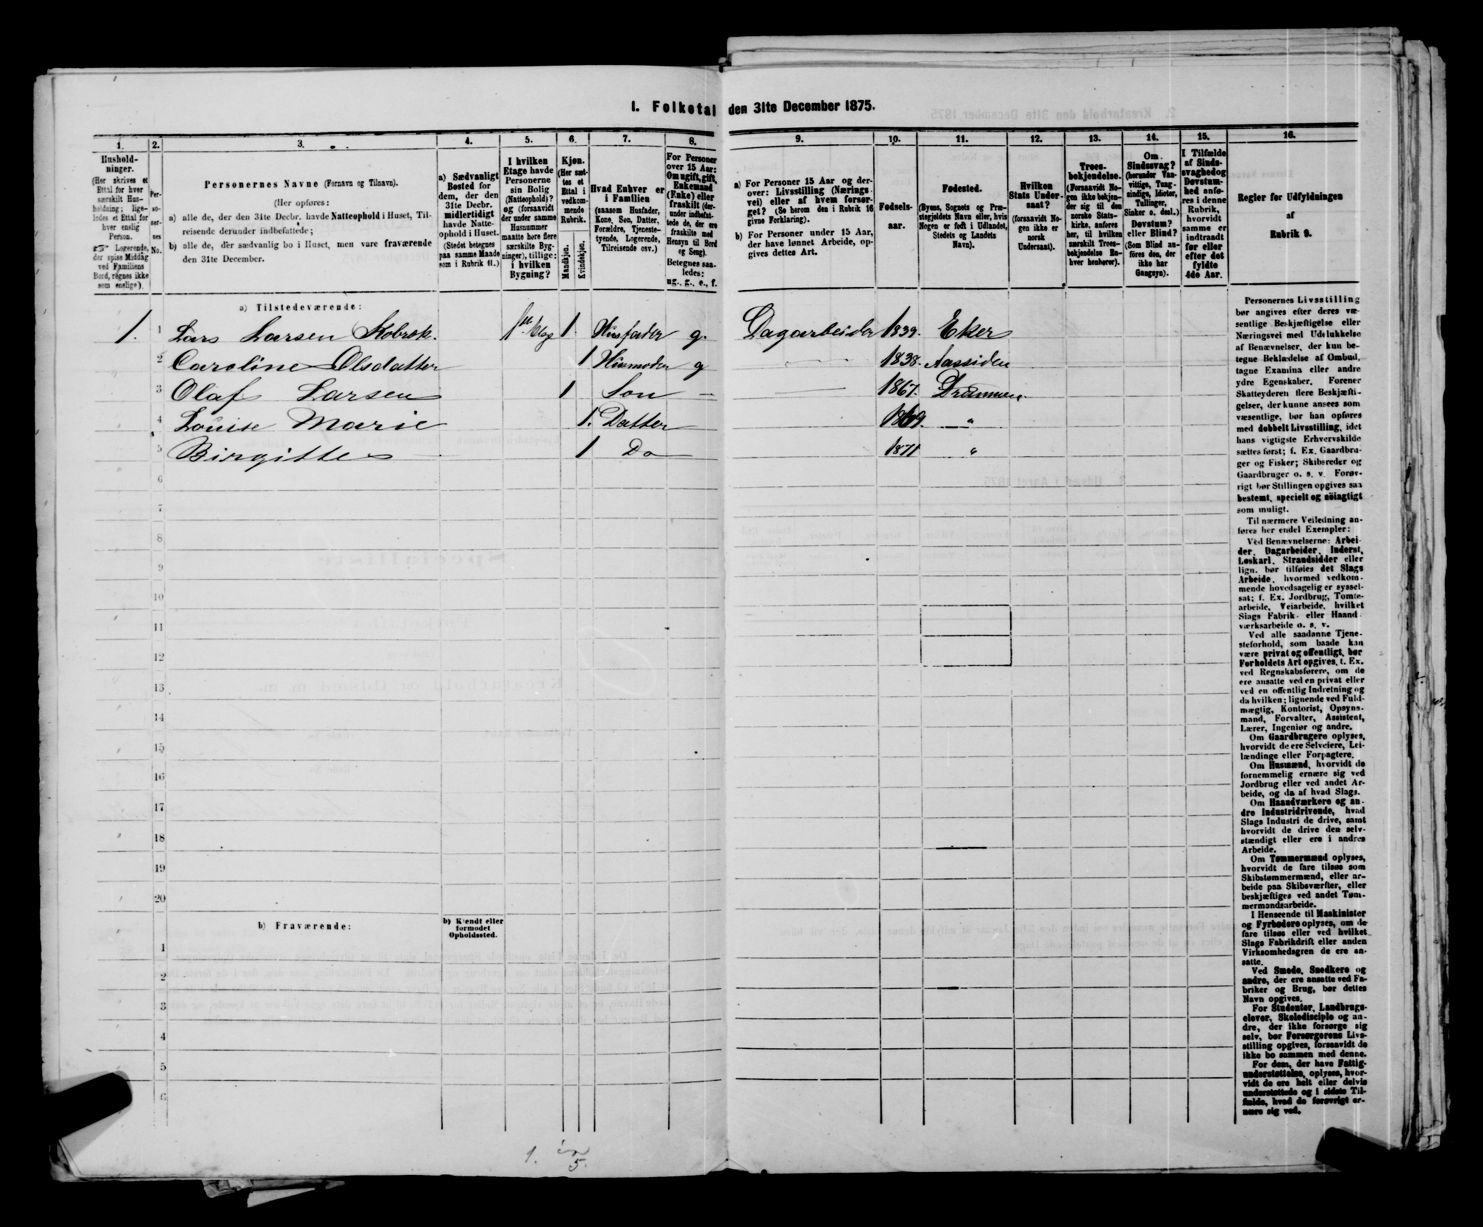 I. Folketal den 31te December 1875.
1. 2. 3. 4. 5. 6. 7. 8. 9. 10. 11. 12. 13. 14. 15. 16.
Hushold-
ninger.
(Her skrives et
Ettal for hver
særskilt Hus-
holdning; lige-
ledes et Ettal for
hver enslig
Person.
☞ Logerende,
der spise Middag
ved Familiens
Bord, regnes ikke
som enslige).
Per-
so-
ner-
nes
No.
Personernes Navne (Fornavn og Tilnavn).
(Her opføres:
a) alle de, der den 31te Decbr. havde Natteophold i Huset, Til-
reisende derunder indbefattede;
b) alle de, der sædvanlig bo i Huset, men vare fraværende
den 31te December.
a) Sædvanligt
Bosted for
dem, der den
31te Decbr.
midlertidigt
havde Natte-
ophold i Huset.
(Stedet betegnes
paa samme Maade
som i Rubrik 11.)
I hvilken
Etage havde
Personerne
sin Bolig
(Natteophold)?
og (forsaavidt
der under samme
Husnummer
maatte høre flere
særskilte Byg-
ninger), tillige:
i hvilken
Bygning?
Kjøn.
(Her sæt-
tes et
Ettal i
vedkom-
mende
Rubrik.
Mandkjøn.
Kvindekjøn.
Hvad Enhver er
i Familien
(saasom Husfader,
Kone, Søn, Datter,
Forældre, Tjeneste-
tyende, Logerende,
Tilreisende osv.)
For Personer
over 15 Aar:
Om ugift, gift,
Enkemand
(Enke) eller
fraskilt (der-
under indbefat-
tede de, der ere
fraskilte med
Hensyn til Bord
og Seng).
Betegnes saa-
ledes:
ug., g., e., f.
a) For Personer 15 Aar og der-
over: Livsstilling (Nærings-
vei) eller af hvem forsør-
get? (Se herom den i Rubrik 16
givne Forklaring).
b) For Personer under 15 Aar,
der have lønnet Arbeide, op-
gives dettes Art.
Fødsels-
aar.
Fødested.
(Byens, Sognets og Præ-
stegjeldets Navn eller, hvis
Nogen er født i Udlandet,
Stedets og Landets
Navn).
Hvilken
Stats Under-
saat?
(forsaavidt No-
gen ikke er
norsk
Undersaat).
Troes-
bekjendelse.
(Forsaavidt No-
gen ikke bekjen-
der sig til den
norske Stats-
kirke, anføres
her, til hvilken
særskilt Troes-
bekjendelse En-
hver henhører).
Om
Sindssvag?
(herunder Van-
vittige, Tung-
sindige, Idioter,
Sinker o. desl.)
Døvstum?
eller Blind?
(Som Blind an-
føres den, der
ikke har
Gangsyn).
I Tilfælde
af Sinds-
svaghed og
Døvstum-
hed anfø-
res i denne
Rubrik,
hvorvidt
samme er
indtraadt
før eller
efter det
fyldte
4de Aar.
Regler for Udfyldningen
af
Rubrik 9.
a) Tilstedeværende:
1. 1 Lars Larsen Kobræk. 1ste Etag 1. Husfader g. Dagarbeider 1839. Eker
2 Caroline Olsdatter 1 Husmoder g 1838. Aassiden
3 Olaf Larsen 1 Søn — 1867. Drammen
4 Louise Marie 1. Datter 1869. "
5 Birgitte 1 Do 1871 "
6
7
8
9
10
11
12
13
14
15
16
17
18
19
20
b) Fraværende:
b) Kjendt eller
formodet
Opholdssted.
1
2
3
4
5
6
1. in 5.
Personernes Livsstilling
bør angives efter deres væ-
sentlige Beskjæftigelse eller
Næringsvei med Udelukkelse
af Benævnelser, der kun be-
tegne Beklædelse af Ombud,
tagne Examina eller andre
ydre Egenskaber. Forener
Skatteyderen flere Beskjæfti-
gelser, der kunne ansees som
væsentlige, bør han opføres
med dobbelt Livsstilling, idet
hans vigtigste Erhvervskilde
sættes først; f. Ex. Gaardbru-
ger og Fisker; Skibsreder og
Gaardbruger o. s. v. Forøv-
rigt bør Stillingen opgives saa
bestemt, specielt og nöiagtigt
som muligt.
Til nærmere Veiledning an-
føres her endel Exempler:
Ved Benævnelserne: Arbei-
der, Dagarbeider, Inderst,
Løskarl, Strandsidder eller
lign. bør tilføies det Slags
Arbeide, hvormed vedkom-
mende hovedsagelig er syssel-
sat; f. Ex. Jordbrug, Tomte-
arbeide, Veiarbeide, hvilket
Slags Fabrik- eller Haand-
værksarbeide o. s. v.
Ved alle saadanne Tjene-
steforhold, som baade kan
være privat og offentligt, bør
Forholdets Art opgives, f. Ex.
ved Regnskabsførere, om de
ere ansatte ved en privat eller
ved en offentlig Indretning og
da hvilken; lignende ved Fuld-
mægtig, Kontorist, Opsyns-
mand, Forvalter, Assistent,
Lærer, Ingeniør og andre.
Om Gaardbrugere oplyses,
hvorvidt de ere Selveiere, Lei-
lændinge eller Forpagtere.
Om Husmænd, hvorvidt de
fornemmelig ernære sig ved
Jordbrug eller ved andet Ar-
beide, og da af hvad Slags.
Om Haandværkere og an-
dre Industridrivende, hvad
Slags Industri de drive, samt
hvorvidt de drive den selv-
stændigt eller ere i andres
Arbeide.
Om Tømmermænd oplyses,
hvorvidt de fare tilsøs som
Skibstømmermænd, eller ar-
beide paa Skibsværfter, eller
beskjæftiges ved andet Tøm-
mermandsarbeide.
I Henseende til Maskinister
og Fyrbødere oplyses, om de
fare tilsøs eller ved hvilket
Slags Fabrikdrift eller anden
Virksomhed de ere an-
satte.
Ved Smede, Snedkere og
andre, der ere ansatte ved Fa-
briker og Brug, bør dettes
Navn opgives.
For Studenter, Landbrugs-
elever, Skoledisciple og an-
dre, der ikke forsørge sig
selv, bør Forsørgerens Livs-
stilling opgives, forsaavidt de
ikke bo sammen med denne.
For dem, der have Fattig-
understøttelse, oplyses, hvor-
vidt de ere helt eller delvis
understøttede og i sidste Til-
fælde, hvad de forøvrigt er-
nære sig ved.